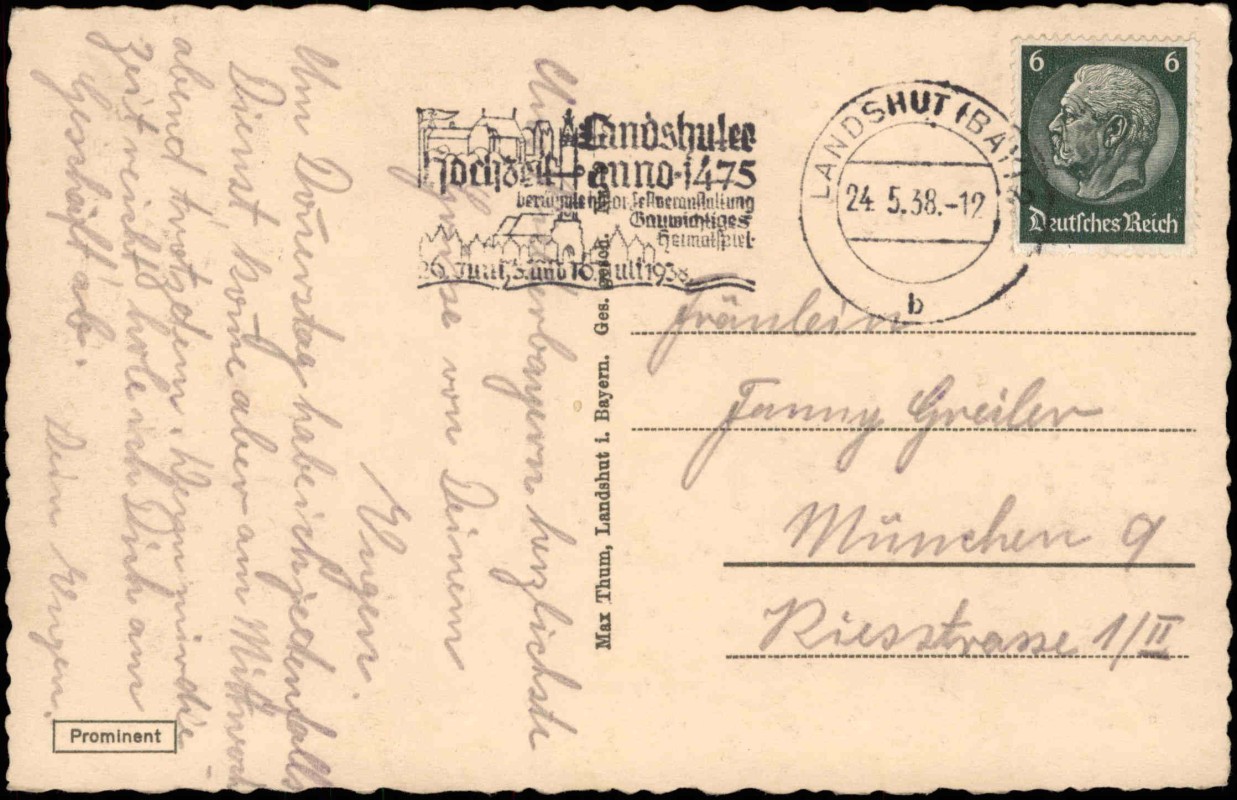 Aus Niederbayern herzlichste
Grüsse von Deinem
Eugen.
Um Donnerstag habe ich jedenfalls
Dienst kom̅e aber am Mittwoch
abend trotzdem. Wenn mir die
Zeit reicht hole ich Dich am
Geschäft ab. Dein Eugen.
Prominent
Max Thum, Landshut i. Bayern. Ges. gesch.
Landshuter
Hochzeit anno 1475
berühmte histor. Festveranstaltung
Gauwichtiges
Heimatspiel
26. Juni, 3. und 10. Juli 1938
LANDSHUT (BAY)
24.5.38.-12
b
6 6
Deutsches Reich
Fräulein
Fanny Greiler
München 9
Riesstrasse 1/II